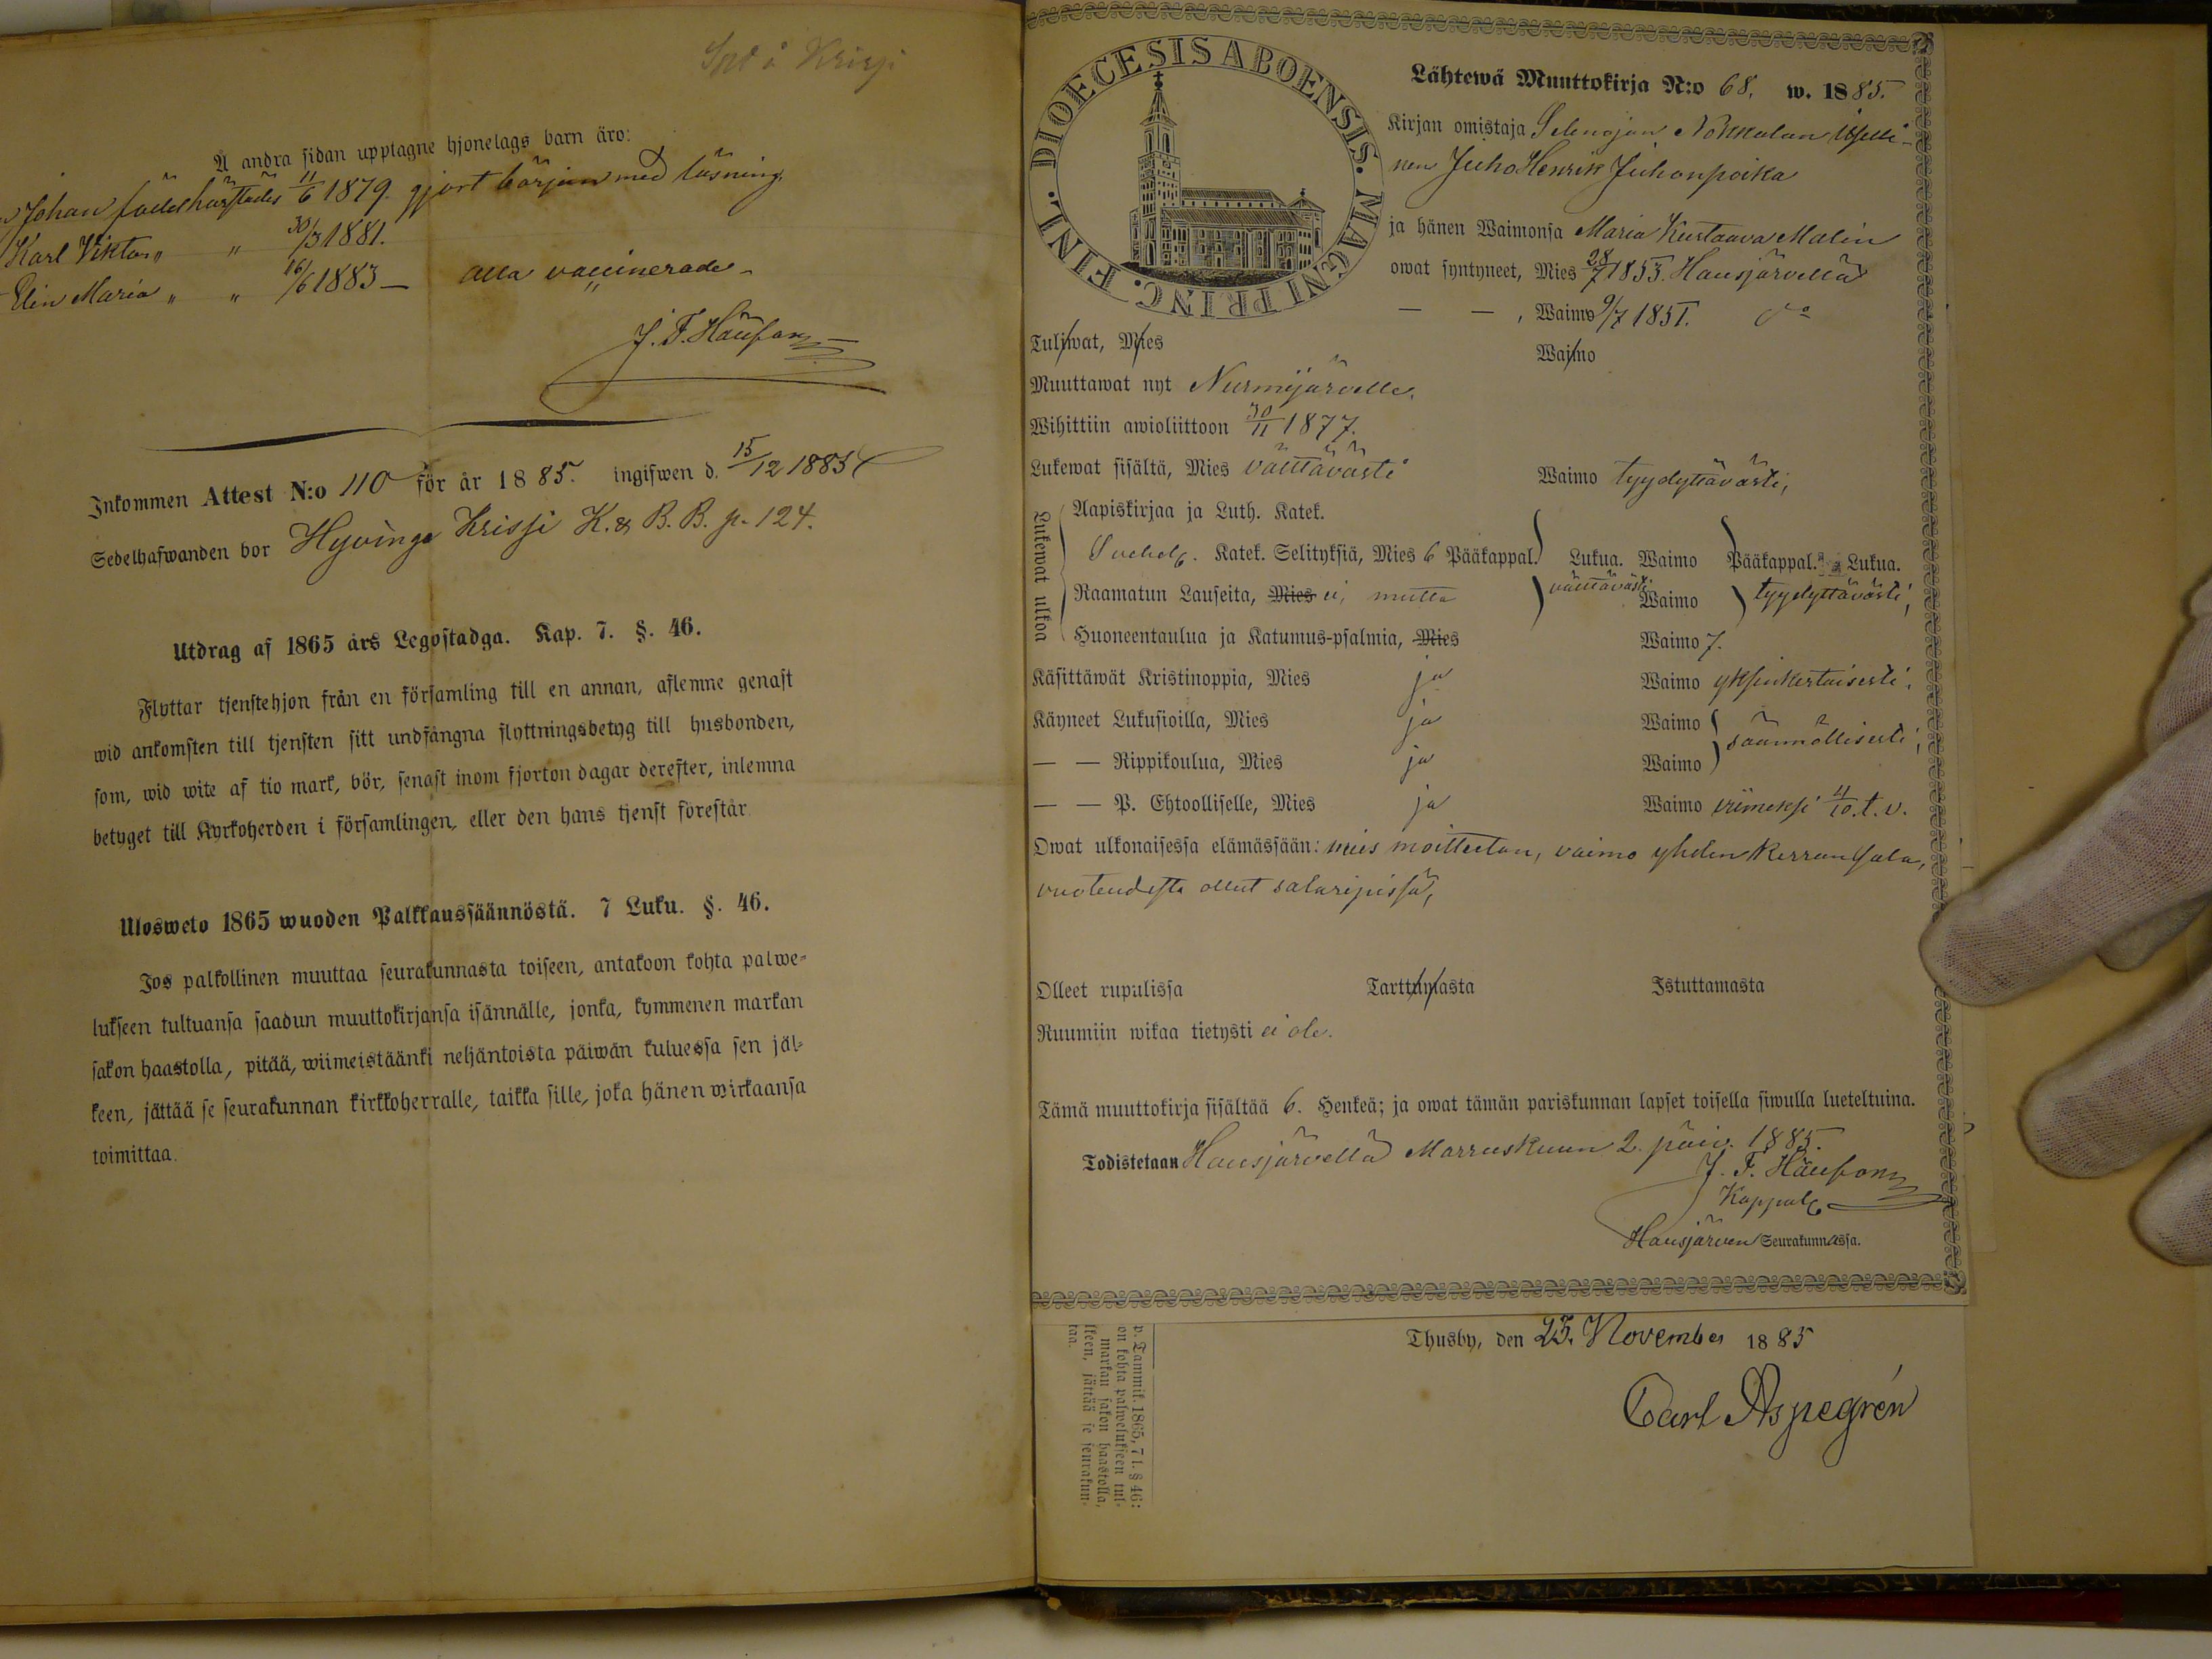 Å andra sidan upptagne hjonelags barn äro:
Johan född härstädes 11/6 1879. gjort början med läsning.
Karl Viktor " " 30/3 1881.
Elin Maria " " 16/6 1883 — alla vaccinerade.
Inkommen Attest N:o 110 för år 1885. ingifwen d. 15/12 1885
Sedelhafwanden bor Hyvinge Krissi K. & B. B. p. 124.
Utdrag af 1865 års Legostadga. Kap. 7. §. 46.
Flyttar tjenstehjon från en församling till en annan, aflemne genast
wid ankomsten till tjensten sitt undfångna flyttningsbetyg till husbonden,
som, wid wite af tio mark, bör, senast inom fjorton dagar derefter, inlemna
betyget till Kyrkoherden i församlingen, eller den hans tjenst förestår.
Ulosweto 1865 wuoden Palkkaussäännöstä. 7 Luku. §. 46.
Jos palkollinen muuttaa seurakunnasta toiseen, antakoon kohta palwe-
lukseen tultuansa saadun muuttokirjansa isännälle, jonka, kymmenen markan
sakon haastolla, pitää, wiimeistäänki neljäntoista päiwän kuluessa sen jäl-
keen, jättää se seurakunnan kirkkoherralle, taikka sille, joka hänen wirkaansa
toimittaa.
DIOECESIS ABOENSIS. MAGNI PRINC. FINL.
Lähtewä Muuttokirja N:o 68. w. 1885.
Kirjan omistaja Selengjan Nokkalan itselli-
nen Juho Henrik Juhonpoika
ja hänen Waimonsa Maria Kustaava Malin
owat syntyneet, Mies 28/7 1853. Hausjärvellä
— — , Waimo 9/7 1851. do
Tuliwat, Mies Waimo
Muuttawat nyt Nurmijärvelle.
Wihittiin awioliittoon 30/11 1877.
Lukewat sisältä, Mies välttävästi Waimo tyydyttävästi,
Lukewat ulkoa
Aapiskirjaa ja Luth. Katek.
Katek. Selityksiä, Mies 6 Pääkappal. Lukua. Waimo Pääkappal. Lukua.
Raamatun Lauseita, Mies ei, mutta välttävästi Waimo tyydyttävästi,
Huoneentaulua ja Katumus-psalmia, Mies Waimo 7.
Käsittäwät Kristinoppia, Mies ja Waimo yksinkertaisesti.
Käyneet Lukusioilla, Mies ja Waimo säännöllisesti,
— — Rippikoulua, Mies ja Waimo
— — P. Ehtoolliselle, Mies ja Waimo viimeksi 4/10. t. v.
Owat ulkonaisessa elämässään: mies moitteeton, vaimo yhden kerran sala-
vuoteudesta ollut salaripissä,
Olleet rupulissa Tarttumasta Istuttamasta
Ruumiin wikaa tietysti ei ole.
Tämä muuttokirja sisältää 6. Henkeä; ja owat tämän pariskunnan lapset toisella siwulla lueteltuina.
Todistetaan Hausjärvellä Marraskuun 2. päiv. 1885.
Kappal.
Hausjärven Seurakunnassa.
p. Tammik. 1865, 7 l. § 46:
on kohta palwelukseen tul-
markan sakon haastolla,
lkeen, jättää se seurakun-
taa.
Thusby, den 25. November 1885
Carl Aspegrén